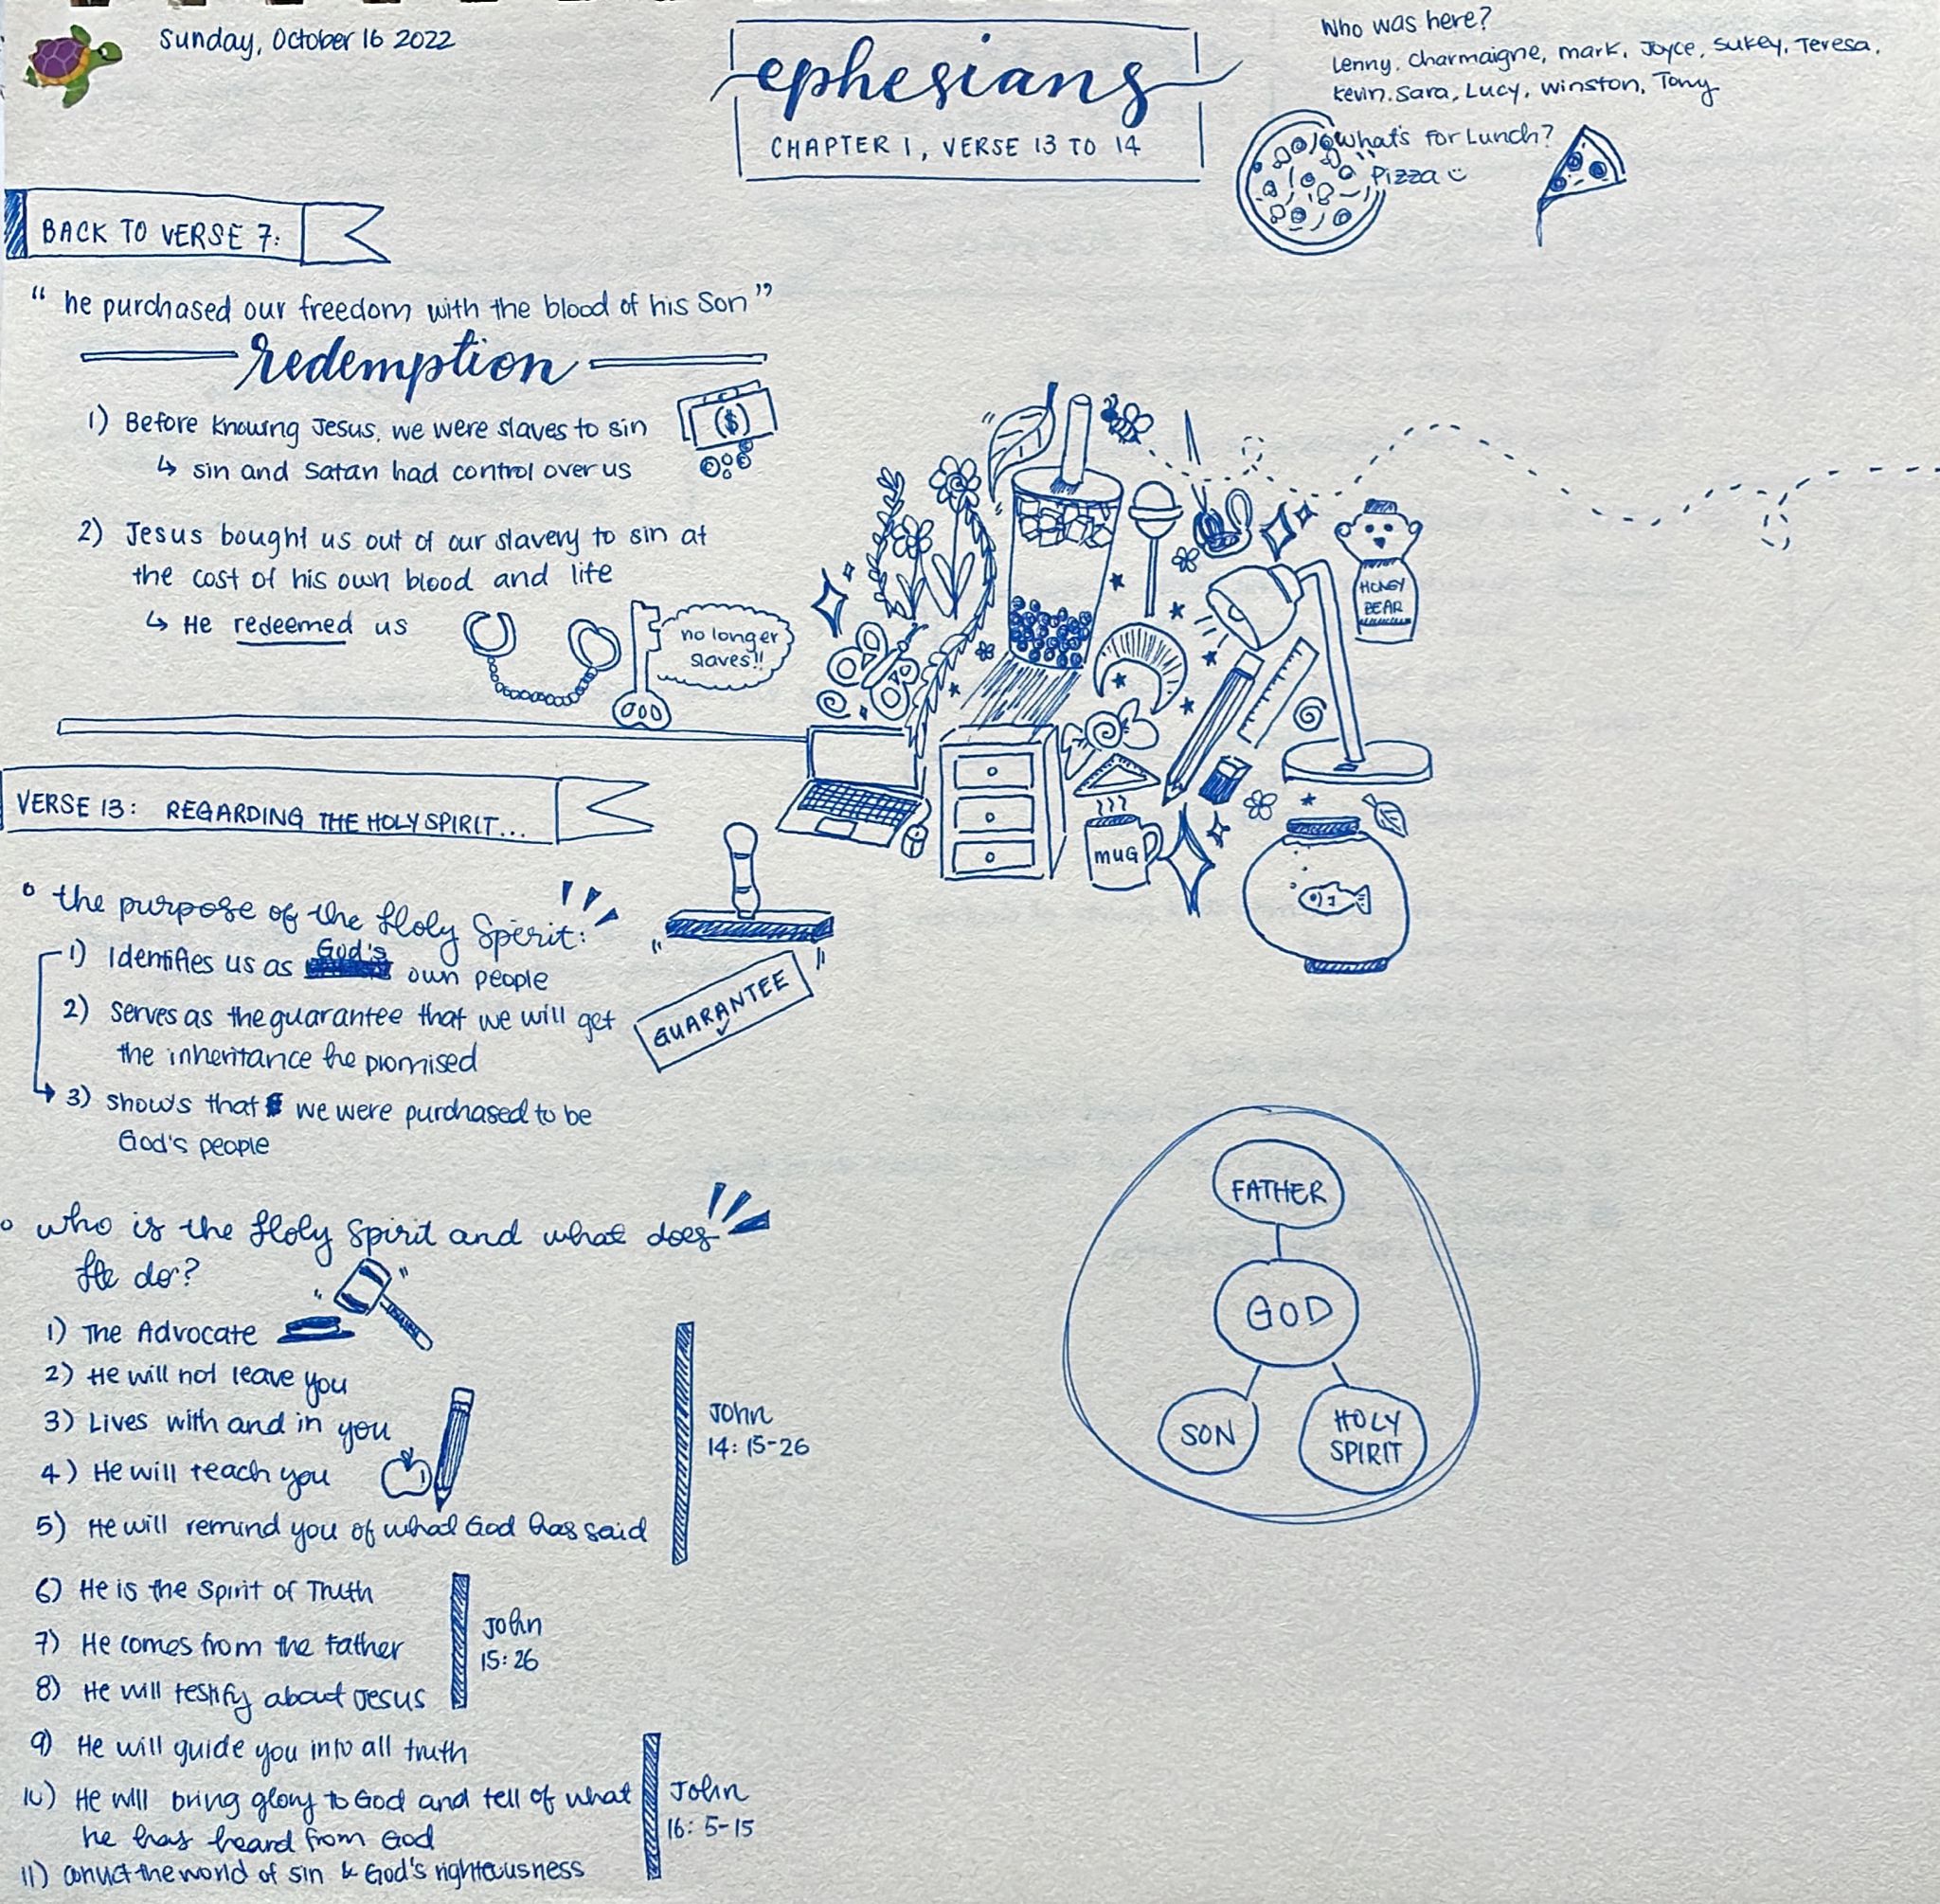 Sunday, October 16 2022
ephesians
CHAPTER 1, VERSE 13 TO 14
Who was here?
Lenny, Charmaigne, mark, Joyce, Sukey, Teresa,
Kevin, Sara, Lucy, Winston, Tony
What's for Lunch?
Pizza
BACK TO VERSE 7:
"he purchased our freedom with the blood of his Son"
redemption
1) Before knowing Jesus, we were slaves to sin
↳ sin and Satan had control over us
($)
2) Jesus bought us out of our slavery to sin at
the cost of his own blood and life
↳ He redeemed us
no longer
slaves!!
HONEY
BEAR
MUG
VERSE 13: REGARDING THE HOLY SPIRIT...
the purpose of the Holy Spirit:
1) Identifies us as God's own people
2) serves as the guarantee that we will get
the inheritance he promised
3) shows that we were purchased to be
God's people
GUARANTEE
who is the Holy Spirit and what does
He do?
1) The Advocate
2) He will not leave you
3) Lives with and in you
4) He will teach you
5) He will remind you of what God has said
John
14: 15-26
6) He is the Spirit of Truth
7) He comes from the Father
8) He will testify about Jesus
John
15:26
9) He will guide you into all truth
10) He will bring glory to God and tell of what
he has heard from God
11) convict the world of sin & God's righteousness
John
16: 5-15
FATHER
GOD
SON
HOLY
SPIRIT